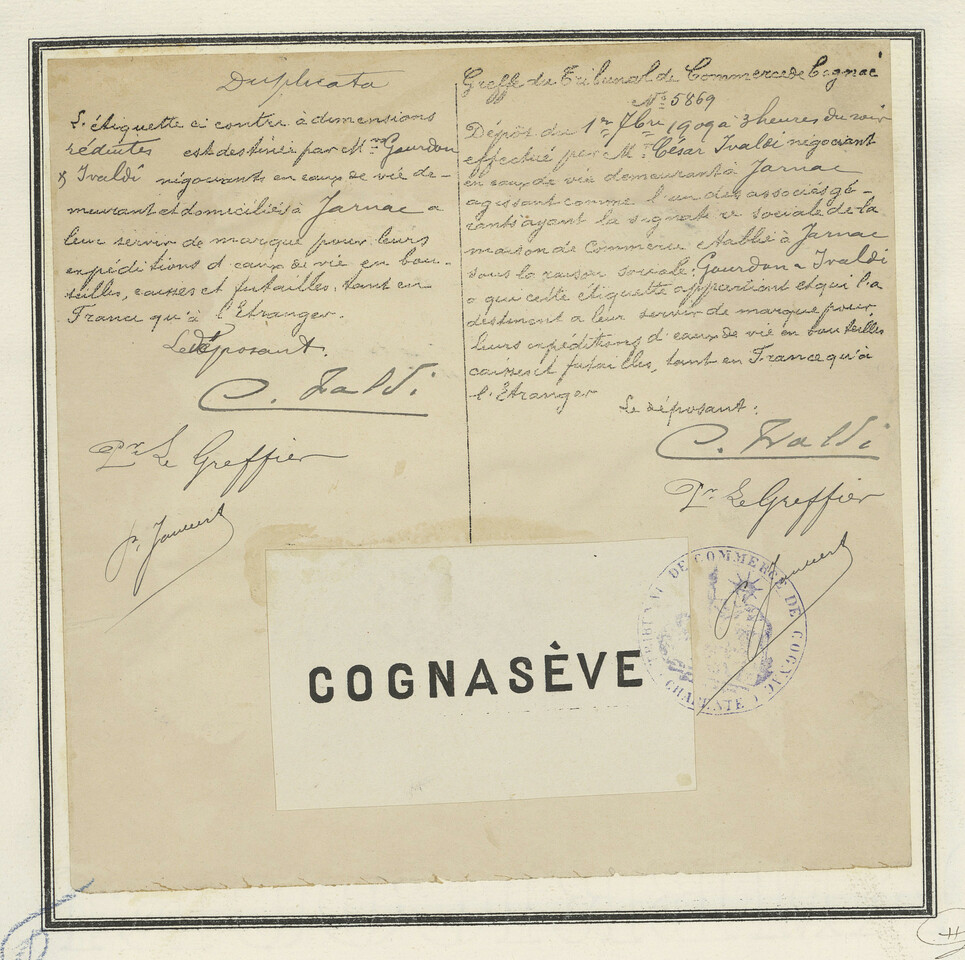 Duplicata
L'étiquette ci contre à dimensions
réduites est destinée par Mrs Gourdon
& Ivaldi négociants en eaux de vie de-
meurant et domiciliés à Jarnac a
leur servir de marque pour leurs
expéditions d'eaux de vie en bou-
teilles, caisses et futailles, tant en
France qu'à l'Etranger.
Le déposant.
C. Ivaldi
Pr Le Greffier
Greffe du Tribunal de Commerce de Cognac
No 5869
Dépôt du 1er 7bre 1909 à 3 heures du soir
effectué par Mr César Ivaldi négociant
en eaux de vie demeurant à Jarnac
agissant comme l'un des associés gé-
rants ayant la signature sociale de la
maison de Commerce établie à Jarnac
sous la raison sociale: Gourdon & Ivaldi
a qui cette étiquette appartient et qui l'a
destinent a leur servir de marque pour
leurs expéditions d'eaux de vie en bouteilles
caisses et futailles, tant en France qu'à
l'Etranger
Le déposant.
C. Ivaldi
Pr Le Greffier
TRIBUNAL DE COMMERCE DE COGNAC
CHARENTE
COGNASÈVE